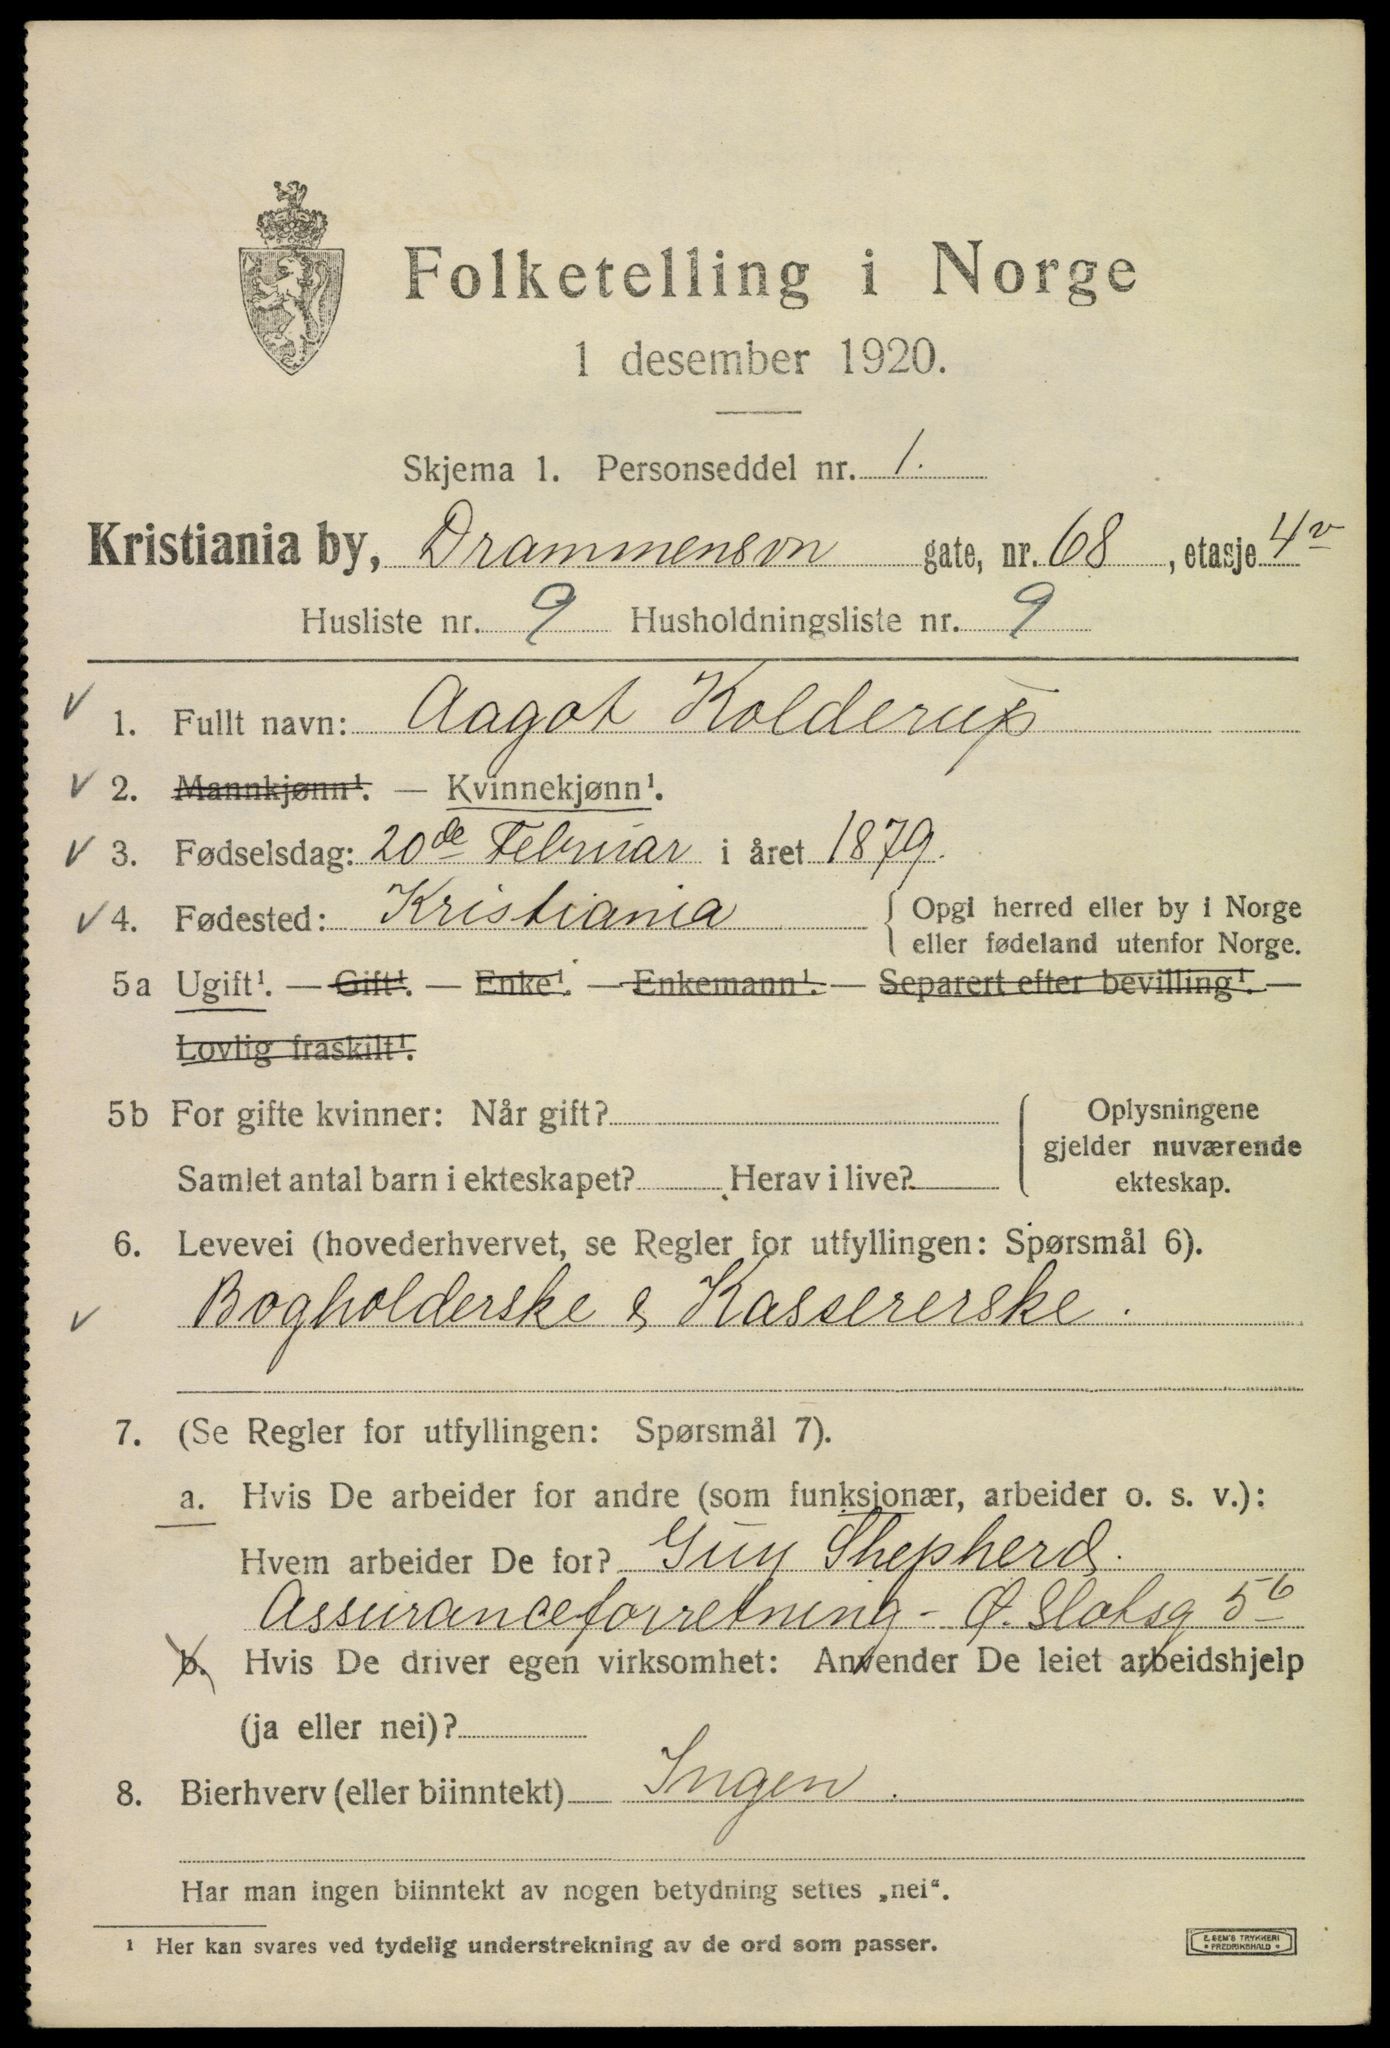 Folketelling i Norge
1 desember 1920.
Skjema 1. Personseddel nr. 1.
Kristiania by, Drammensvn gate, nr. 68, etasje 4 v
Husliste nr. 9 Husholdningsliste nr. 9
1. Fullt navn: Aagot Kolderup
2. Mannkjønn¹. — Kvinnekjønn¹.
3. Fødselsdag: 20de Februar i året 1879.
4. Fødested: Kristiania { Opgi herred eller by i Norge
eller fødeland utenfor Norge.
5a Ugift¹. — Gift¹. — Enke¹. — Enkemann¹. — Separert efter bevilling¹. —
Lovlig fraskilt¹.
5b For gifte kvinner: Når gift? { Oplysningene
gjelder nuværende
Samlet antal barn i ekteskapet? Herav i live? ekteskap.
6. Levevei (hovederhvervet, se Regler for utfyllingen: Spørsmål 6).
Bogholderske & Kassererske.
7. (Se Regler for utfyllingen: Spørsmål 7).
a. Hvis De arbeider for andre (som funksjonær, arbeider o. s. v.):
Hvem arbeider De for? Guy Shepherd.
Assuranceforretning - Ø. Slotsg 5b
b. Hvis De driver egen virksomhet: Anvender De leiet arbeidshjelp
(ja eller nei)?
8. Bierhverv (eller biinntekt) Ingen.
Har man ingen biinntekt av nogen betydning settes „nei“.
¹ Her kan svares ved tydelig understrekning av de ord som passer.
E. SEM'S TRYKKERI
• FREDRIKSHALD •